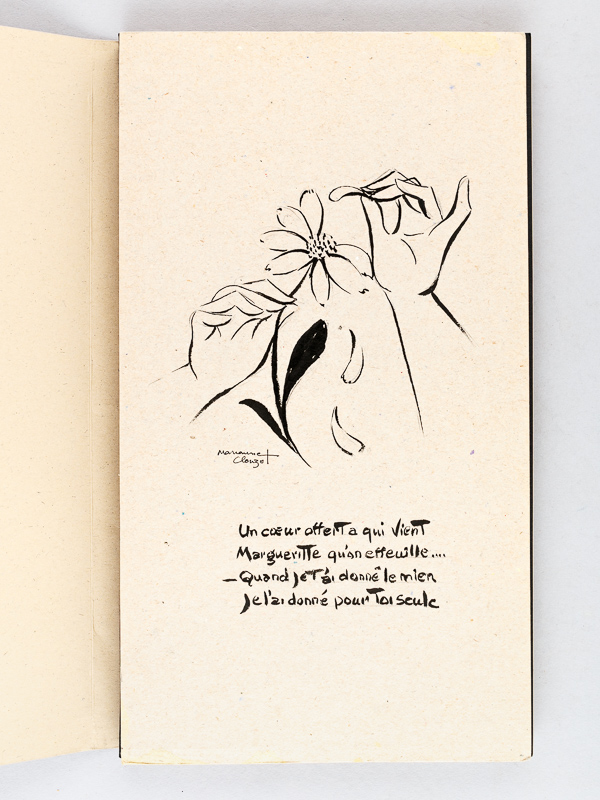 Marianne
Clouzot
Un cœur offert a qui vient
Margueritte qu'on effeuille....
– Quand je t'ai donné le mien
Je l'ai donné pour Toi seule